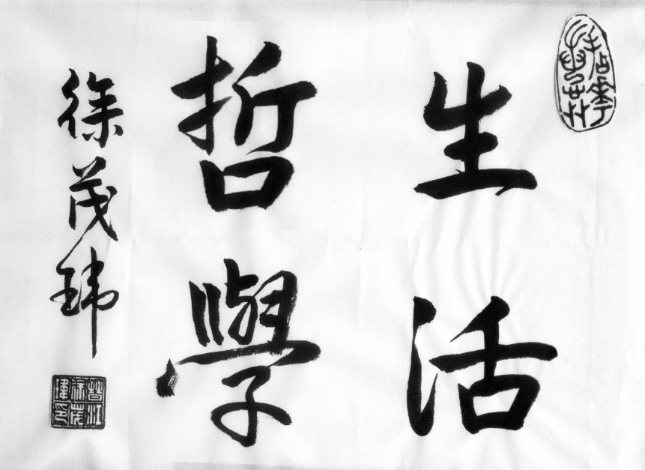 生活
哲學
徐茂瑋